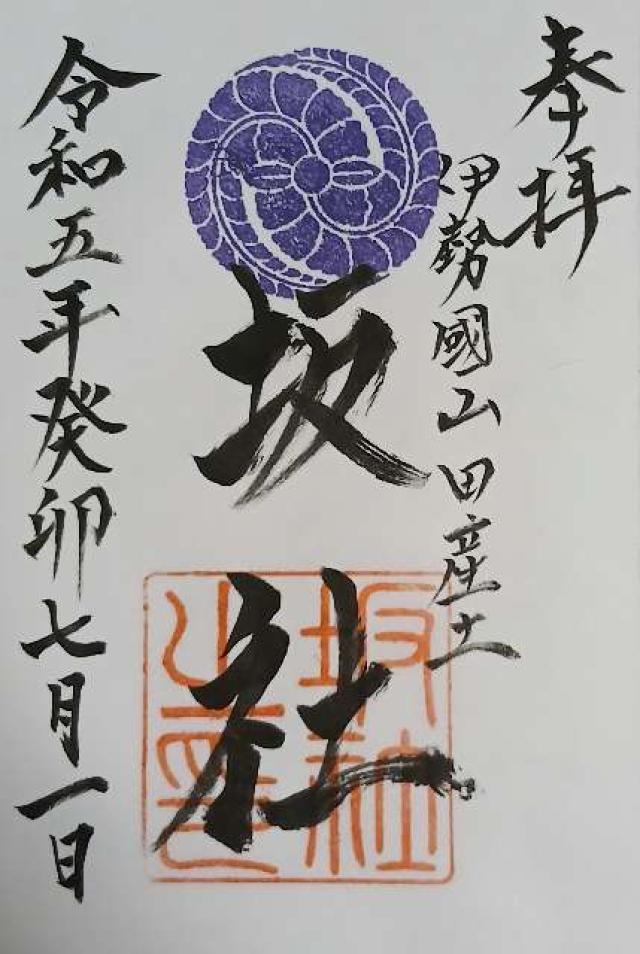 奉拝
伊勢國山田産土
坂社
坂社之印
令和五年癸卯七月一日